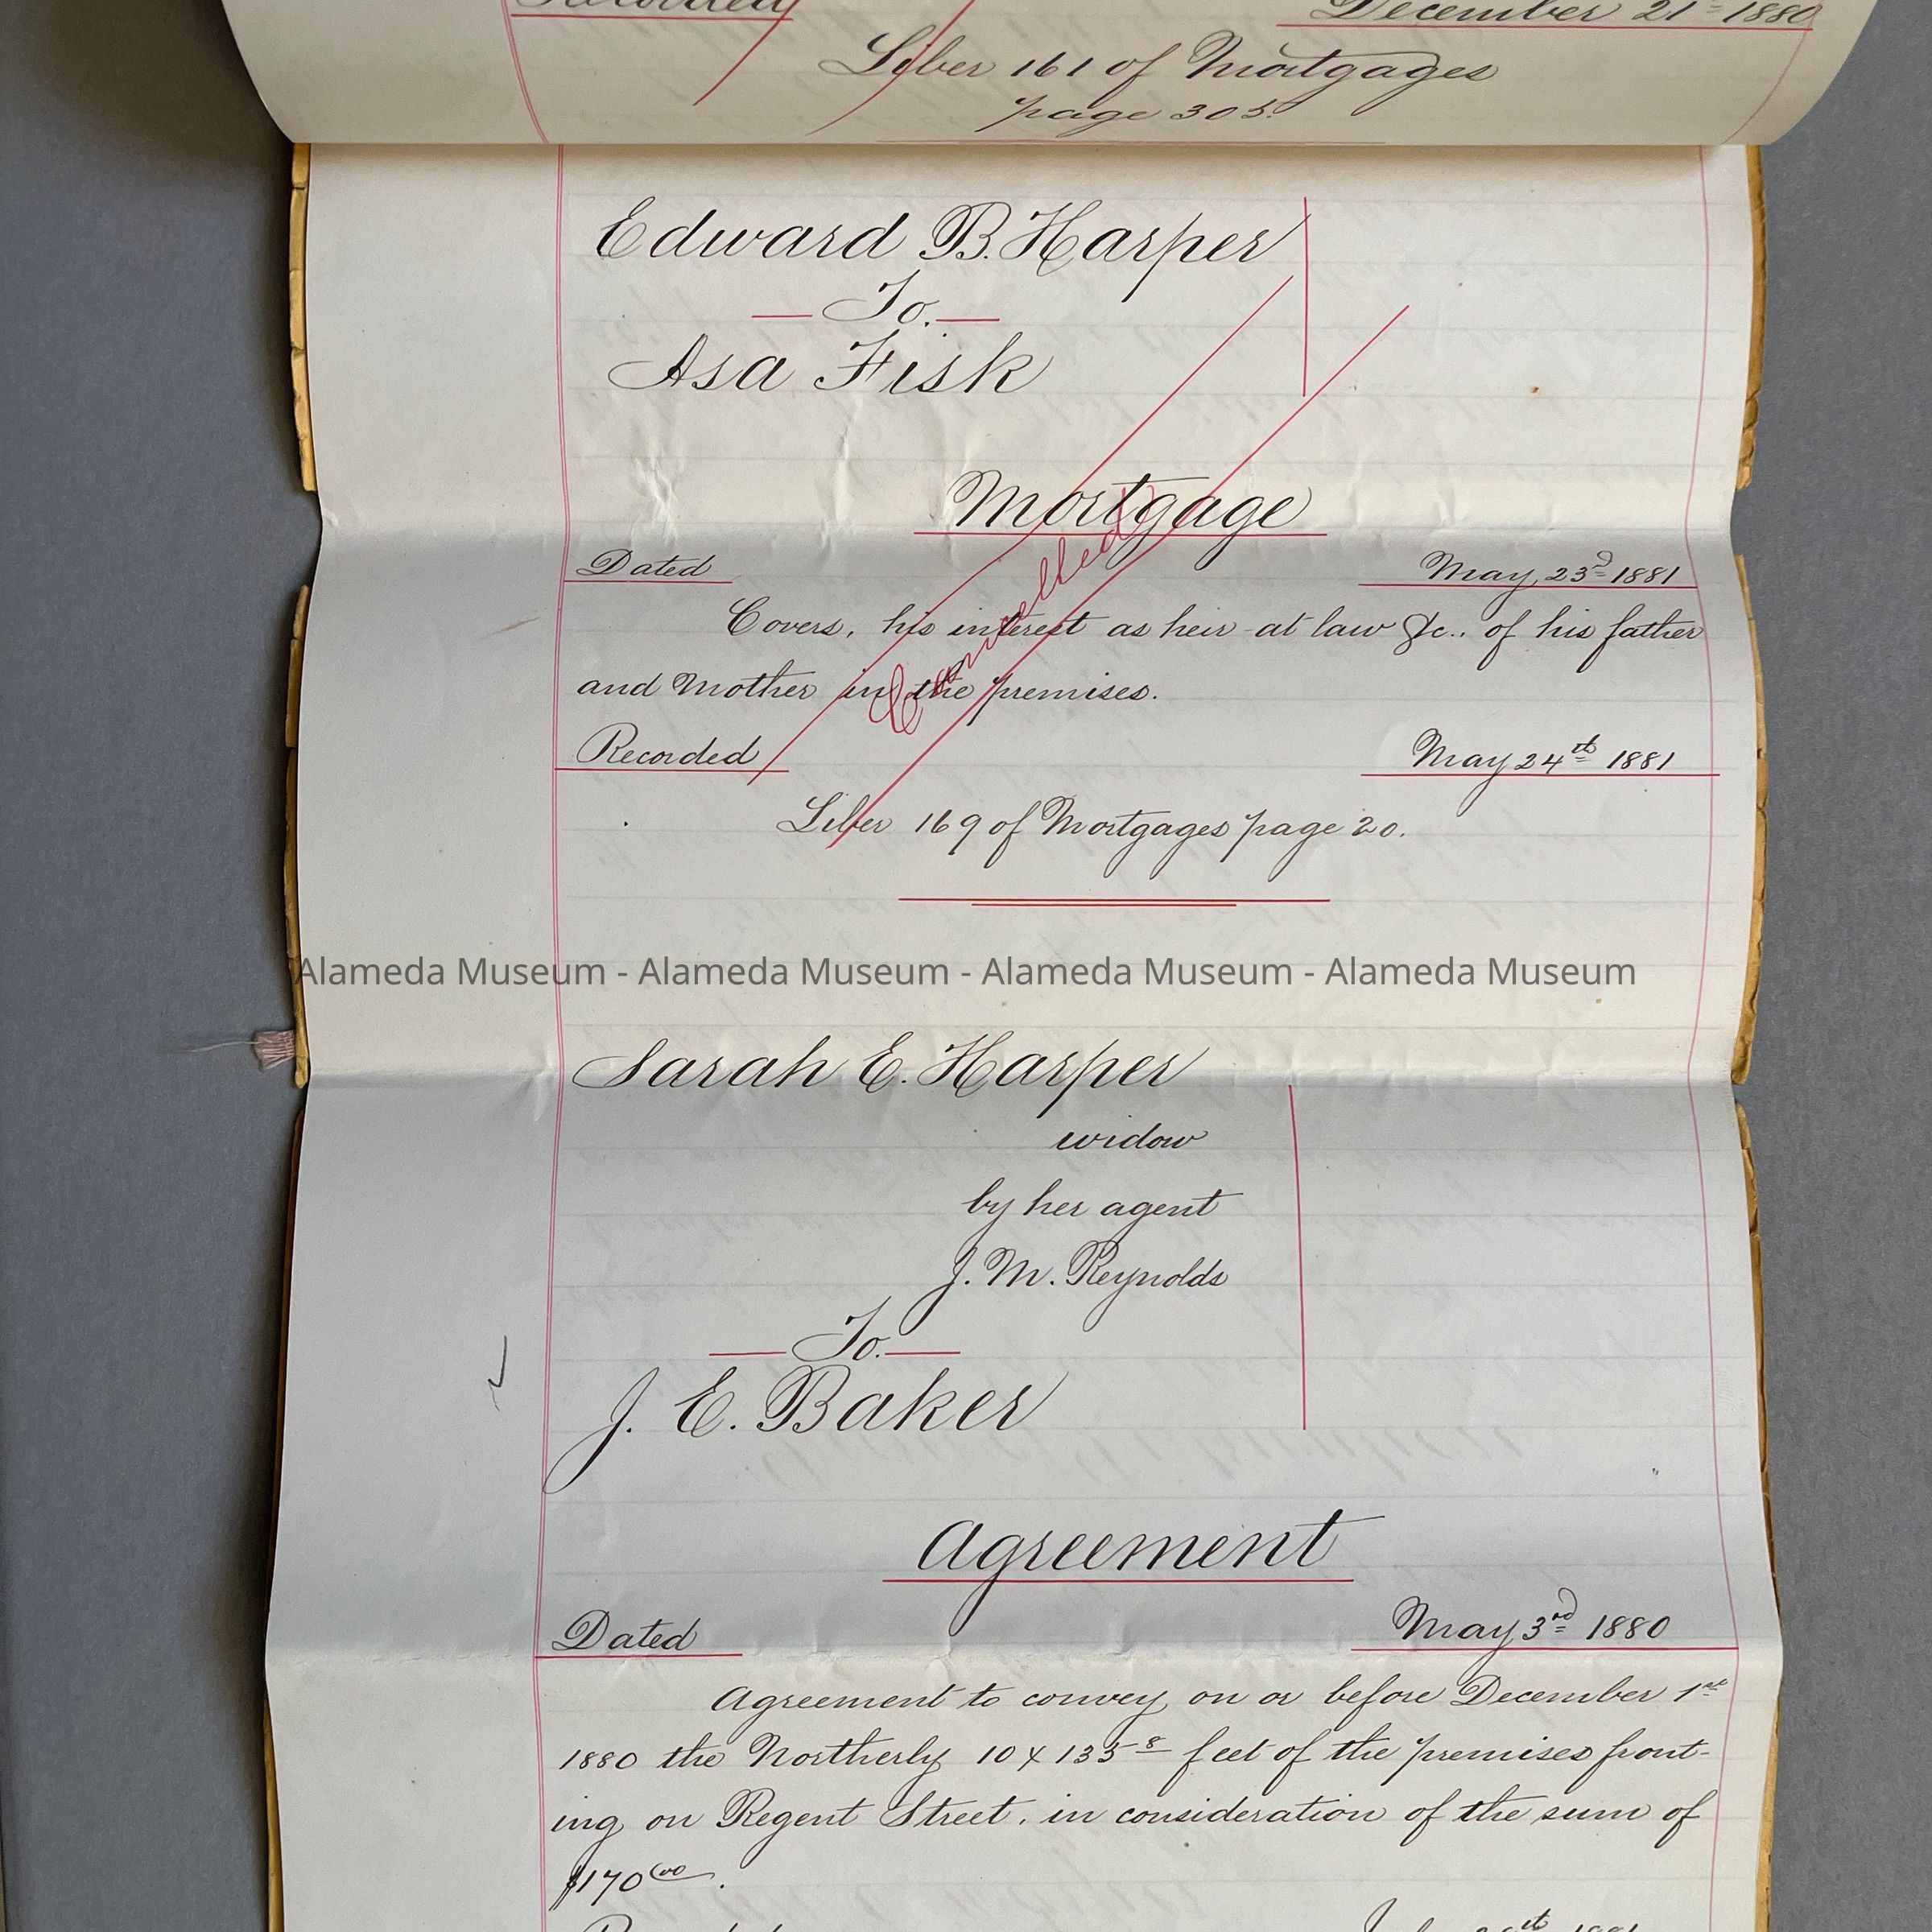 Recorded December 21st 1880
Liber 161 of Mortgages
page 305.
Edward B. Harper
— To. —
Asa Fisk
Mortgage
Cancelled
Dated May 23rd 1881
Covers, his interest as heir at law &c., of his father
and Mother in the premises.
Recorded May 24th 1881
Liber 169 of Mortgages page 20.
Alameda Museum - Alameda Museum - Alameda Museum - Alameda Museum
Sarah E. Harper
widow
by her agent
J. M. Reynolds
— To. —
J. E. Baker
Agreement
Dated May 3rd 1880
Agreement to convey on or before December 1st
1880 the Northerly 10 x 135-8 feet of the premises front-
ing on Regent Street, in consideration of the sum of
$170 00.
1881